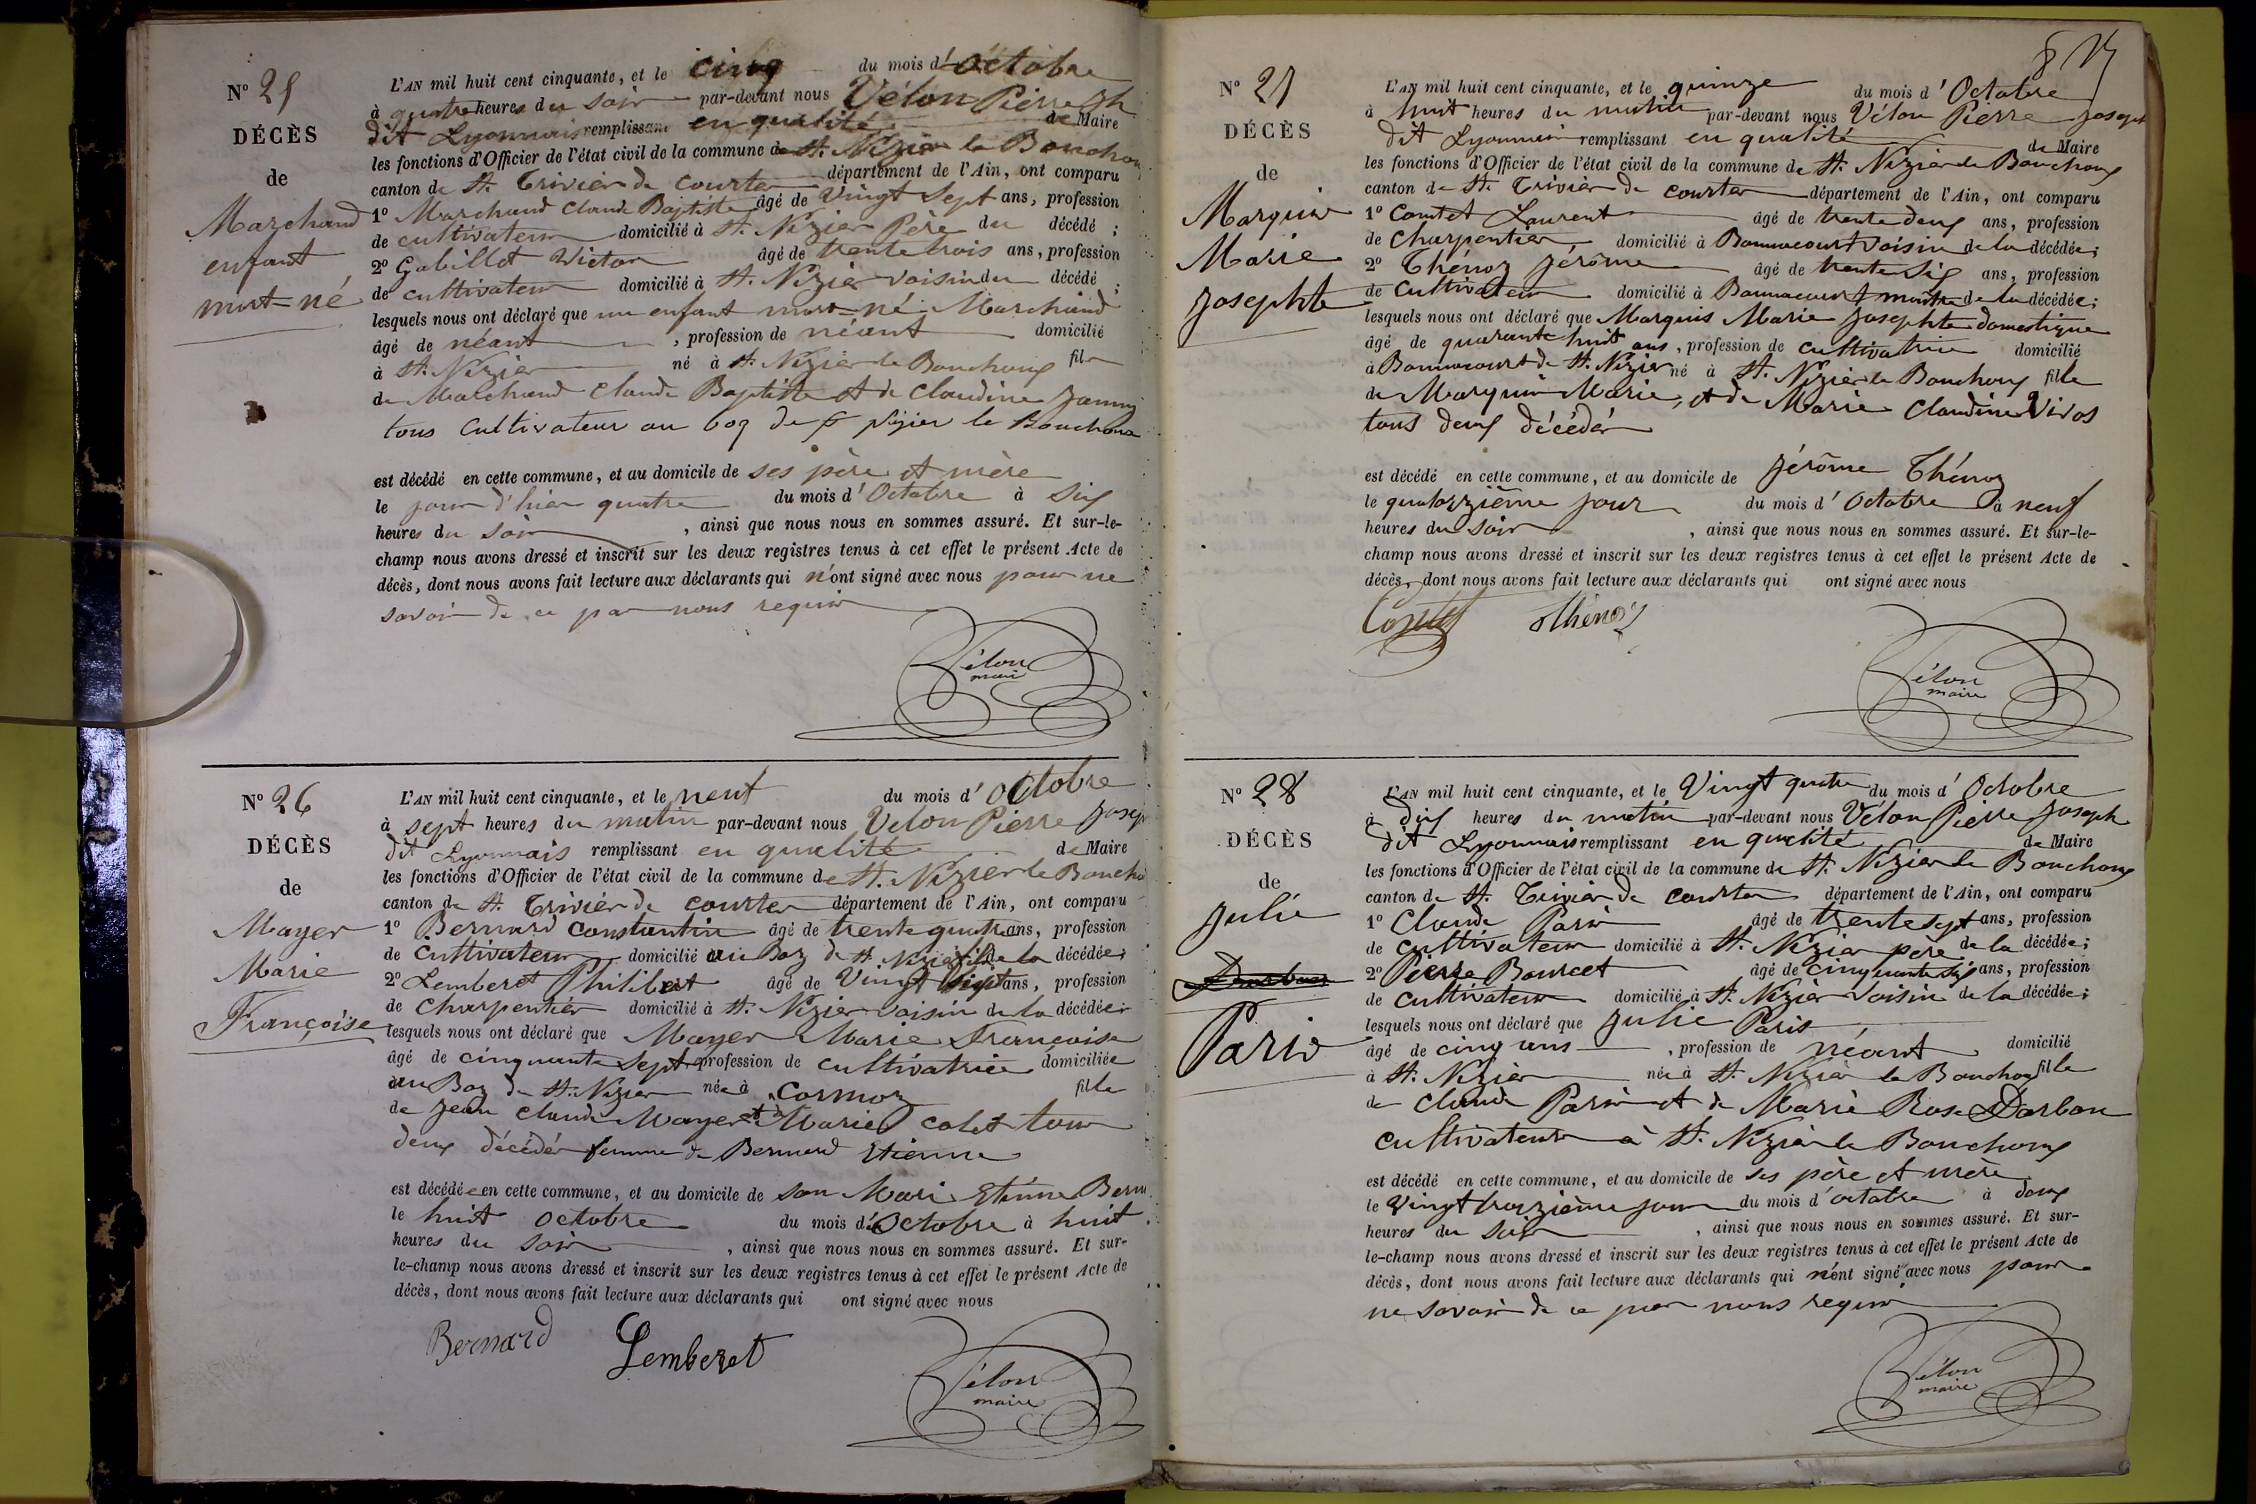 N° 25
DÉCÈS
de
Marchand
enfant
mort-né
L'AN mil huit cent cinquante, et le cinq du mois d'Octobre
à quatre heures du soir par-devant nous Vélon Pierre Jh
dit Lyonnais remplissant en qualité de Maire
les fonctions d'Officier de l'état civil de la commune de St. Nizier le Bouchoux
canton de St. Trivier de courtes département de l'Ain, ont comparu
1° Marchand Claude Baptiste âgé de Vingt Sept ans, profession
de cultivateur domicilié à St. Nizier Père du décédé ;
2° Gabillet Victor âgé de trente trois ans, profession
de cultivateur domicilié à St. Nizier voisin du décédé ;
lesquels nous ont déclaré que un enfant mort-né Marchand
âgé de néant , profession de néant domicilié
à St. Nizier né à St. Nizier le Bouchoux fils
de Marchand Claude Baptiste et de Claudine
tous cultivateur au de St Nizier le Bouchoux
est décédé en cette commune, et au domicile de ses père et mère
le jour d'hier quatre du mois d'Octobre à Six
heures du soir , ainsi que nous nous en sommes assuré. Et sur-le-
champ nous avons dressé et inscrit sur les deux registres tenus à cet effet le présent Acte de
décès, dont nous avons fait lecture aux déclarants qui n'ont signé avec nous pour ne
savoir de ce par nous requis
Vélon
maire
N° 26
DÉCÈS
de
Mayer
Marie
Françoise
L'AN mil huit cent cinquante, et le neuf du mois d'Octobre
à sept heures du matin par-devant nous Vélon Pierre Joseph
dit Lyonnais remplissant en qualité de Maire
les fonctions d'Officier de l'état civil de la commune de St. Nizier le Boucho
canton de St. Trivier de courtes département de l'Ain, ont comparu
1° Bernard Constantin âgé de trente quatre ans, profession
de Cultivateur domicilié au Boz de St Nizier fils de la décédée ;
2° Lemberet Philibert âgé de Vingt Sept ans, profession
de Charpentier domicilié à St. Nizier voisin de la décédée ;
lesquels nous ont déclaré que Mayer Marie Françoise
âgé de cinquante sept profession de cultivatrice domiciliée
au Boz de St. Nizier née à Cormoz fille
de Jean Claude Mayer et de Marie Colet tous
deux décédés femme de Bernard Etienne
est décédée en cette commune, et au domicile de son Mari Etienne Bern
le huit octobre du mois d'Octobre à huit
heures du soir , ainsi que nous nous en sommes assuré. Et sur-
le-champ nous avons dressé et inscrit sur les deux registres tenus à cet effet le présent Acte de
décès, dont nous avons fait lecture aux déclarants qui ont signé avec nous
Bernard Lemberet
Vélon
maire
N° 27
DÉCÈS
de
Marquis
Marie
Josephte
L'AN mil huit cent cinquante, et le quinze du mois d'Octobre
à huit heures du matin par-devant nous Vélon Pierre Joseph
dit Lyonnais remplissant en qualité de Maire
les fonctions d'Officier de l'état civil de la commune de St. Nizier le Bouchoux
canton de St. Trivier de courtes département de l'Ain, ont comparu
1° Comtet Laurent âgé de trente deux ans, profession
de Charpentier domicilié à Bonnacourt voisin de la décédée ;
2° Thénoz Jérôme âgé de trente Six ans, profession
de Cultivateur domicilié à Bonnacourt maître de la décédée ;
lesquels nous ont déclaré que Marquis Marie Josephte domestique
âgé de quarante huit ans , profession de cultivatrice domicilié
à Bonnacourt de St. Nizier né à St. Nizier le Bouchoux fille
de Marquis Marie, et de Marie Claudine
tous deux décédés
est décédé en cette commune, et au domicile de Jérôme Thénoz
le quatorzième jour du mois d'Octobre à neuf
heures du soir , ainsi que nous nous en sommes assuré. Et sur-le-
champ nous avons dressé et inscrit sur les deux registres tenus à cet effet le présent Acte de
décès, dont nous avons fait lecture aux déclarants qui ont signé avec nous
Comtet Thénoz
Vélon
maire
N° 28
DÉCÈS
de
Julie
Paris
L'AN mil huit cent cinquante, et le Vingt quatre du mois d'Octobre
à dix heures du matin par-devant nous Vélon Pierre Joseph
dit Lyonnais remplissant en qualité de Maire
les fonctions d'Officier de l'état civil de la commune de St. Nizier le Bouchoux
canton de St. Trivier de courtes département de l'Ain, ont comparu
1° Claude Paris âgé de trente sept ans, profession
de cultivateur domicilié à St. Nizier père de la décédée ;
2° Pierre Bourcet âgé de cinquante six ans, profession
de cultivateur domicilié à St. Nizier voisin de la décédée ;
lesquels nous ont déclaré que Julie Paris
âgé de cinq ans , profession de néant domicilié
à St. Nizier née à St. Nizier le Bouchoux fille
de Claude Paris et de Marie Rose Darbon
cultivateurs à St. Nizier le Bouchoux
est décédé en cette commune, et au domicile de ses père et mère
le Vingt troizième jour du mois d'octobre à deux
heures du soir , ainsi que nous nous en sommes assuré. Et sur-
le-champ nous avons dressé et inscrit sur les deux registres tenus à cet effet le présent Acte de
décès, dont nous avons fait lecture aux déclarants qui n'ont signé avec nous pour
ne savoir de ce par nous requis
Vélon
maire